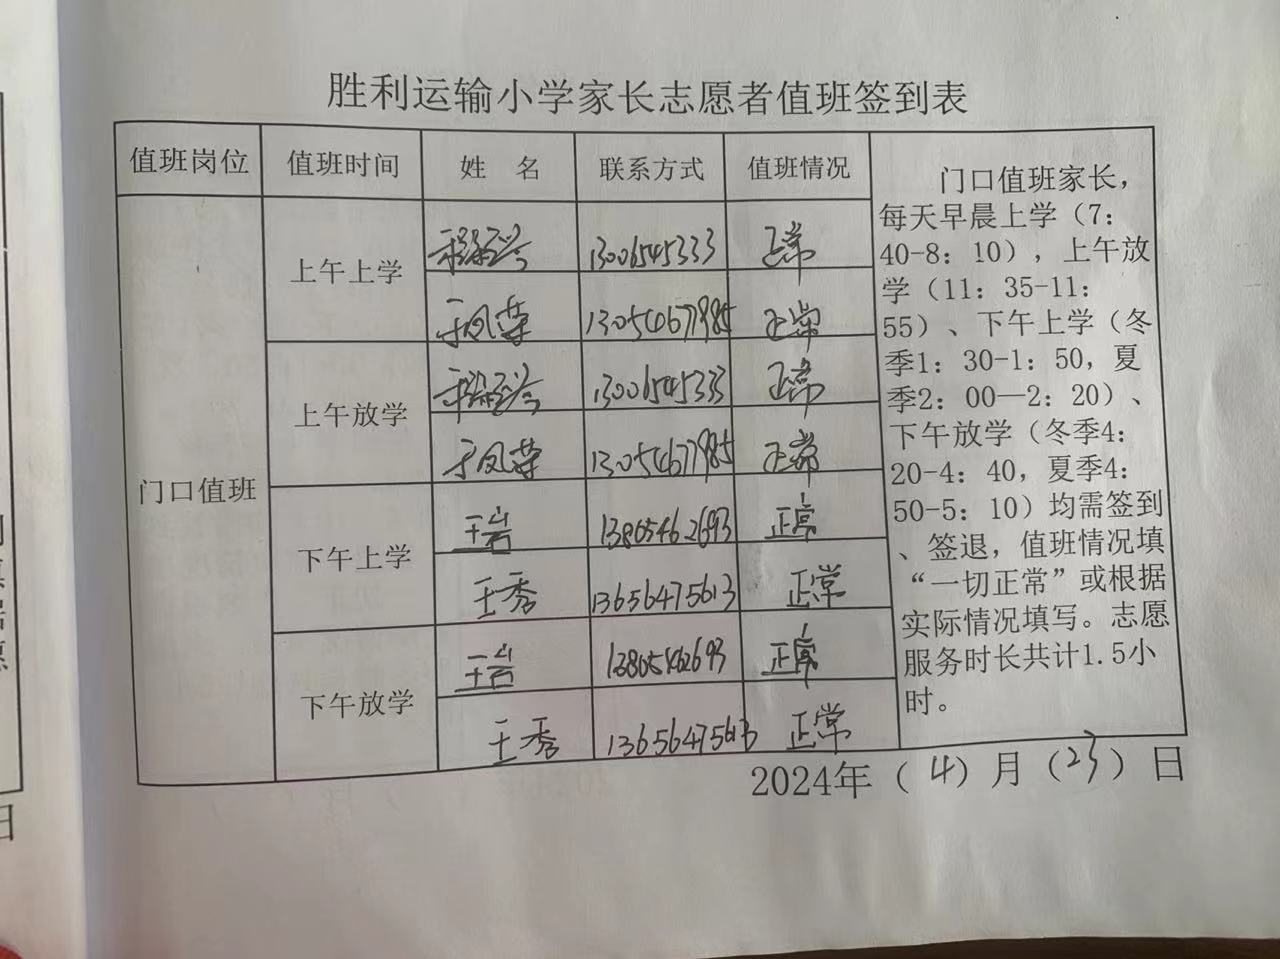 胜利运输小学家长志愿者值班签到表
值班岗位 值班时间 姓 名 联系方式 值班情况
门口值班
上午上学
13006545333 正常
于凤荣 13054677985 正常
上午放学
13006545333 正常
于凤荣 13054677985 正常
下午上学
王岩 13805462693 正常
王秀 13656475613 正常
下午放学
王岩 13805462693 正常
王秀 13656475613 正常
门口值班家长，
每天早晨上学（7：
40-8：10），上午放
学（11：35-11：
55）、下午上学（冬
季1：30-1：50，夏
季2：00—2：20）、
下午放学（冬季4：
20-4：40，夏季4：
50-5：10）均需签到
、签退，值班情况填
“一切正常”或根据
实际情况填写。志愿
服务时长共计1.5小
时。
2024年（4）月（23）日